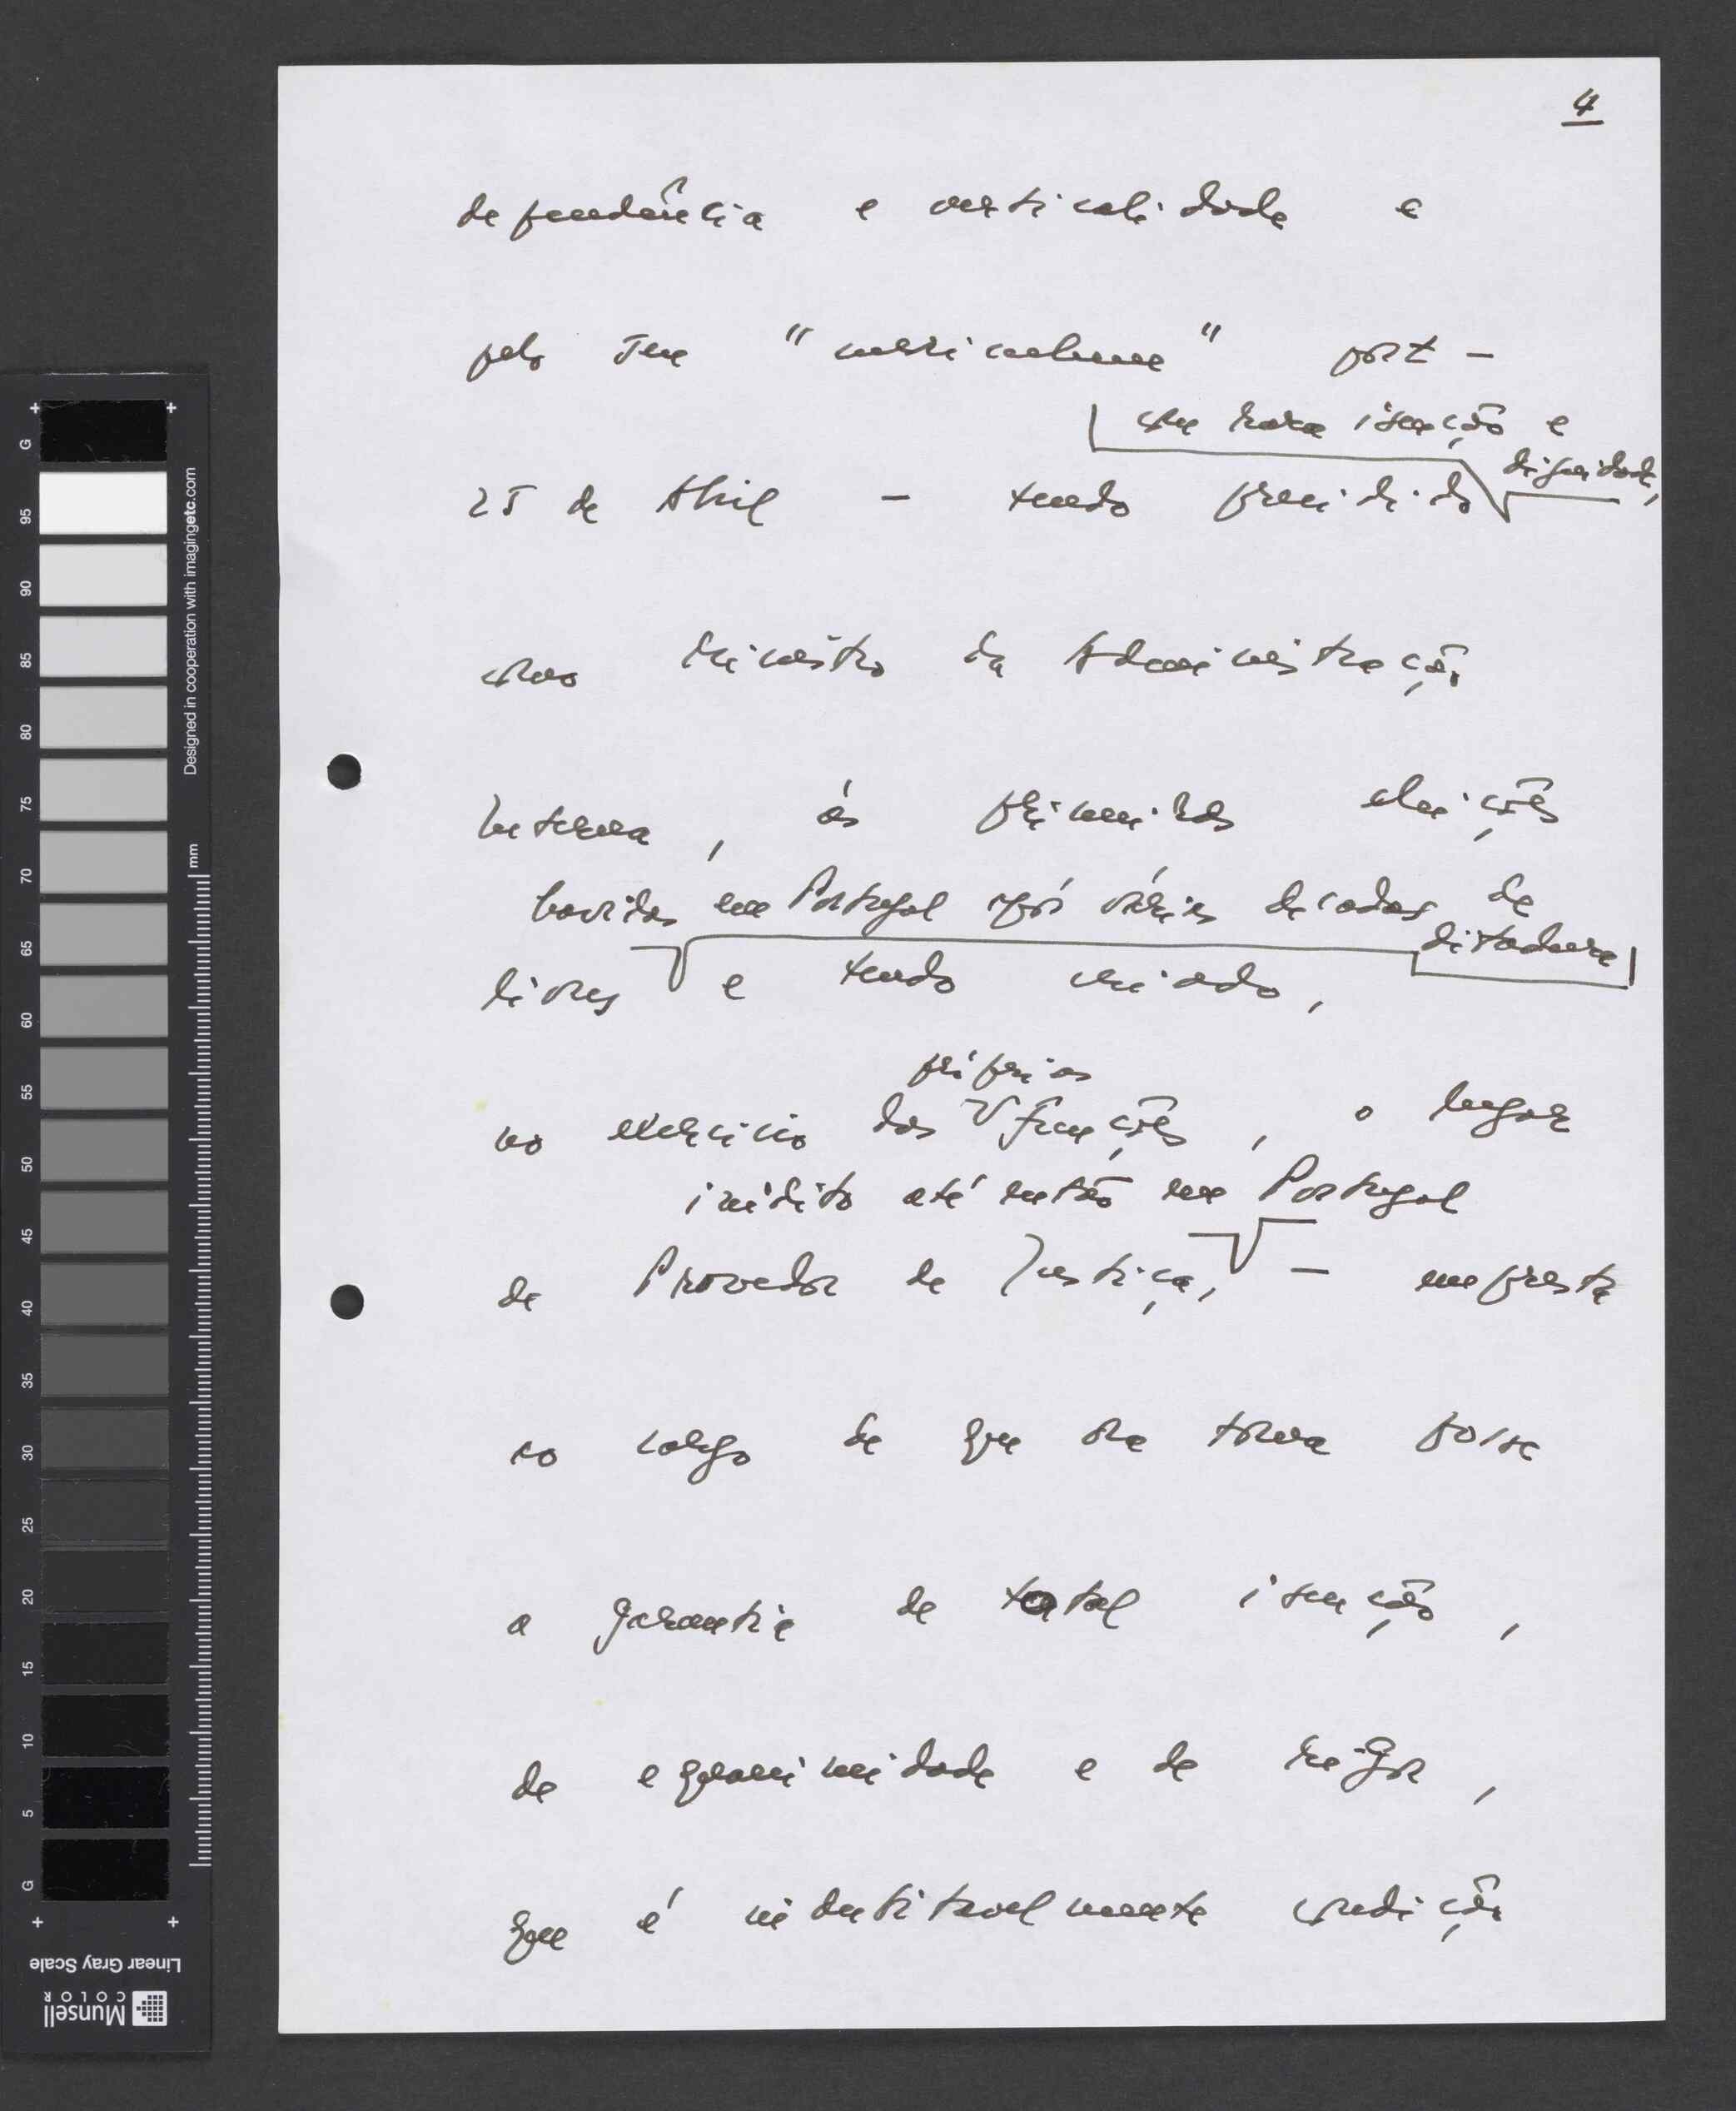 4
dependência e verticalidade e
pelo seu "curriculum" post-
com rara isenção e
dignidade,
25 de Abril - tendo presidido
como Ministro da Administração
Interna, às primeiras eleições
havidas em Portugal após várias décadas de
ditadura
livres e tendo criado,
próprias
no exercício das funções, o lugar
inédito até então em Portugal
de Provedor de Justiça, - empresta
ao cargo de que ora toma posse
a garantia de total isenção,
de equanimidade e de rigor,
que é indubitavelmente condição
G 95 90 85 80 75 70 65 60 55 50 45 40 35 30 25 20 15 10 5 G
mm
Designed in cooperation with imagingetc.com
Linear Gray Scale
Munsell
COLOR